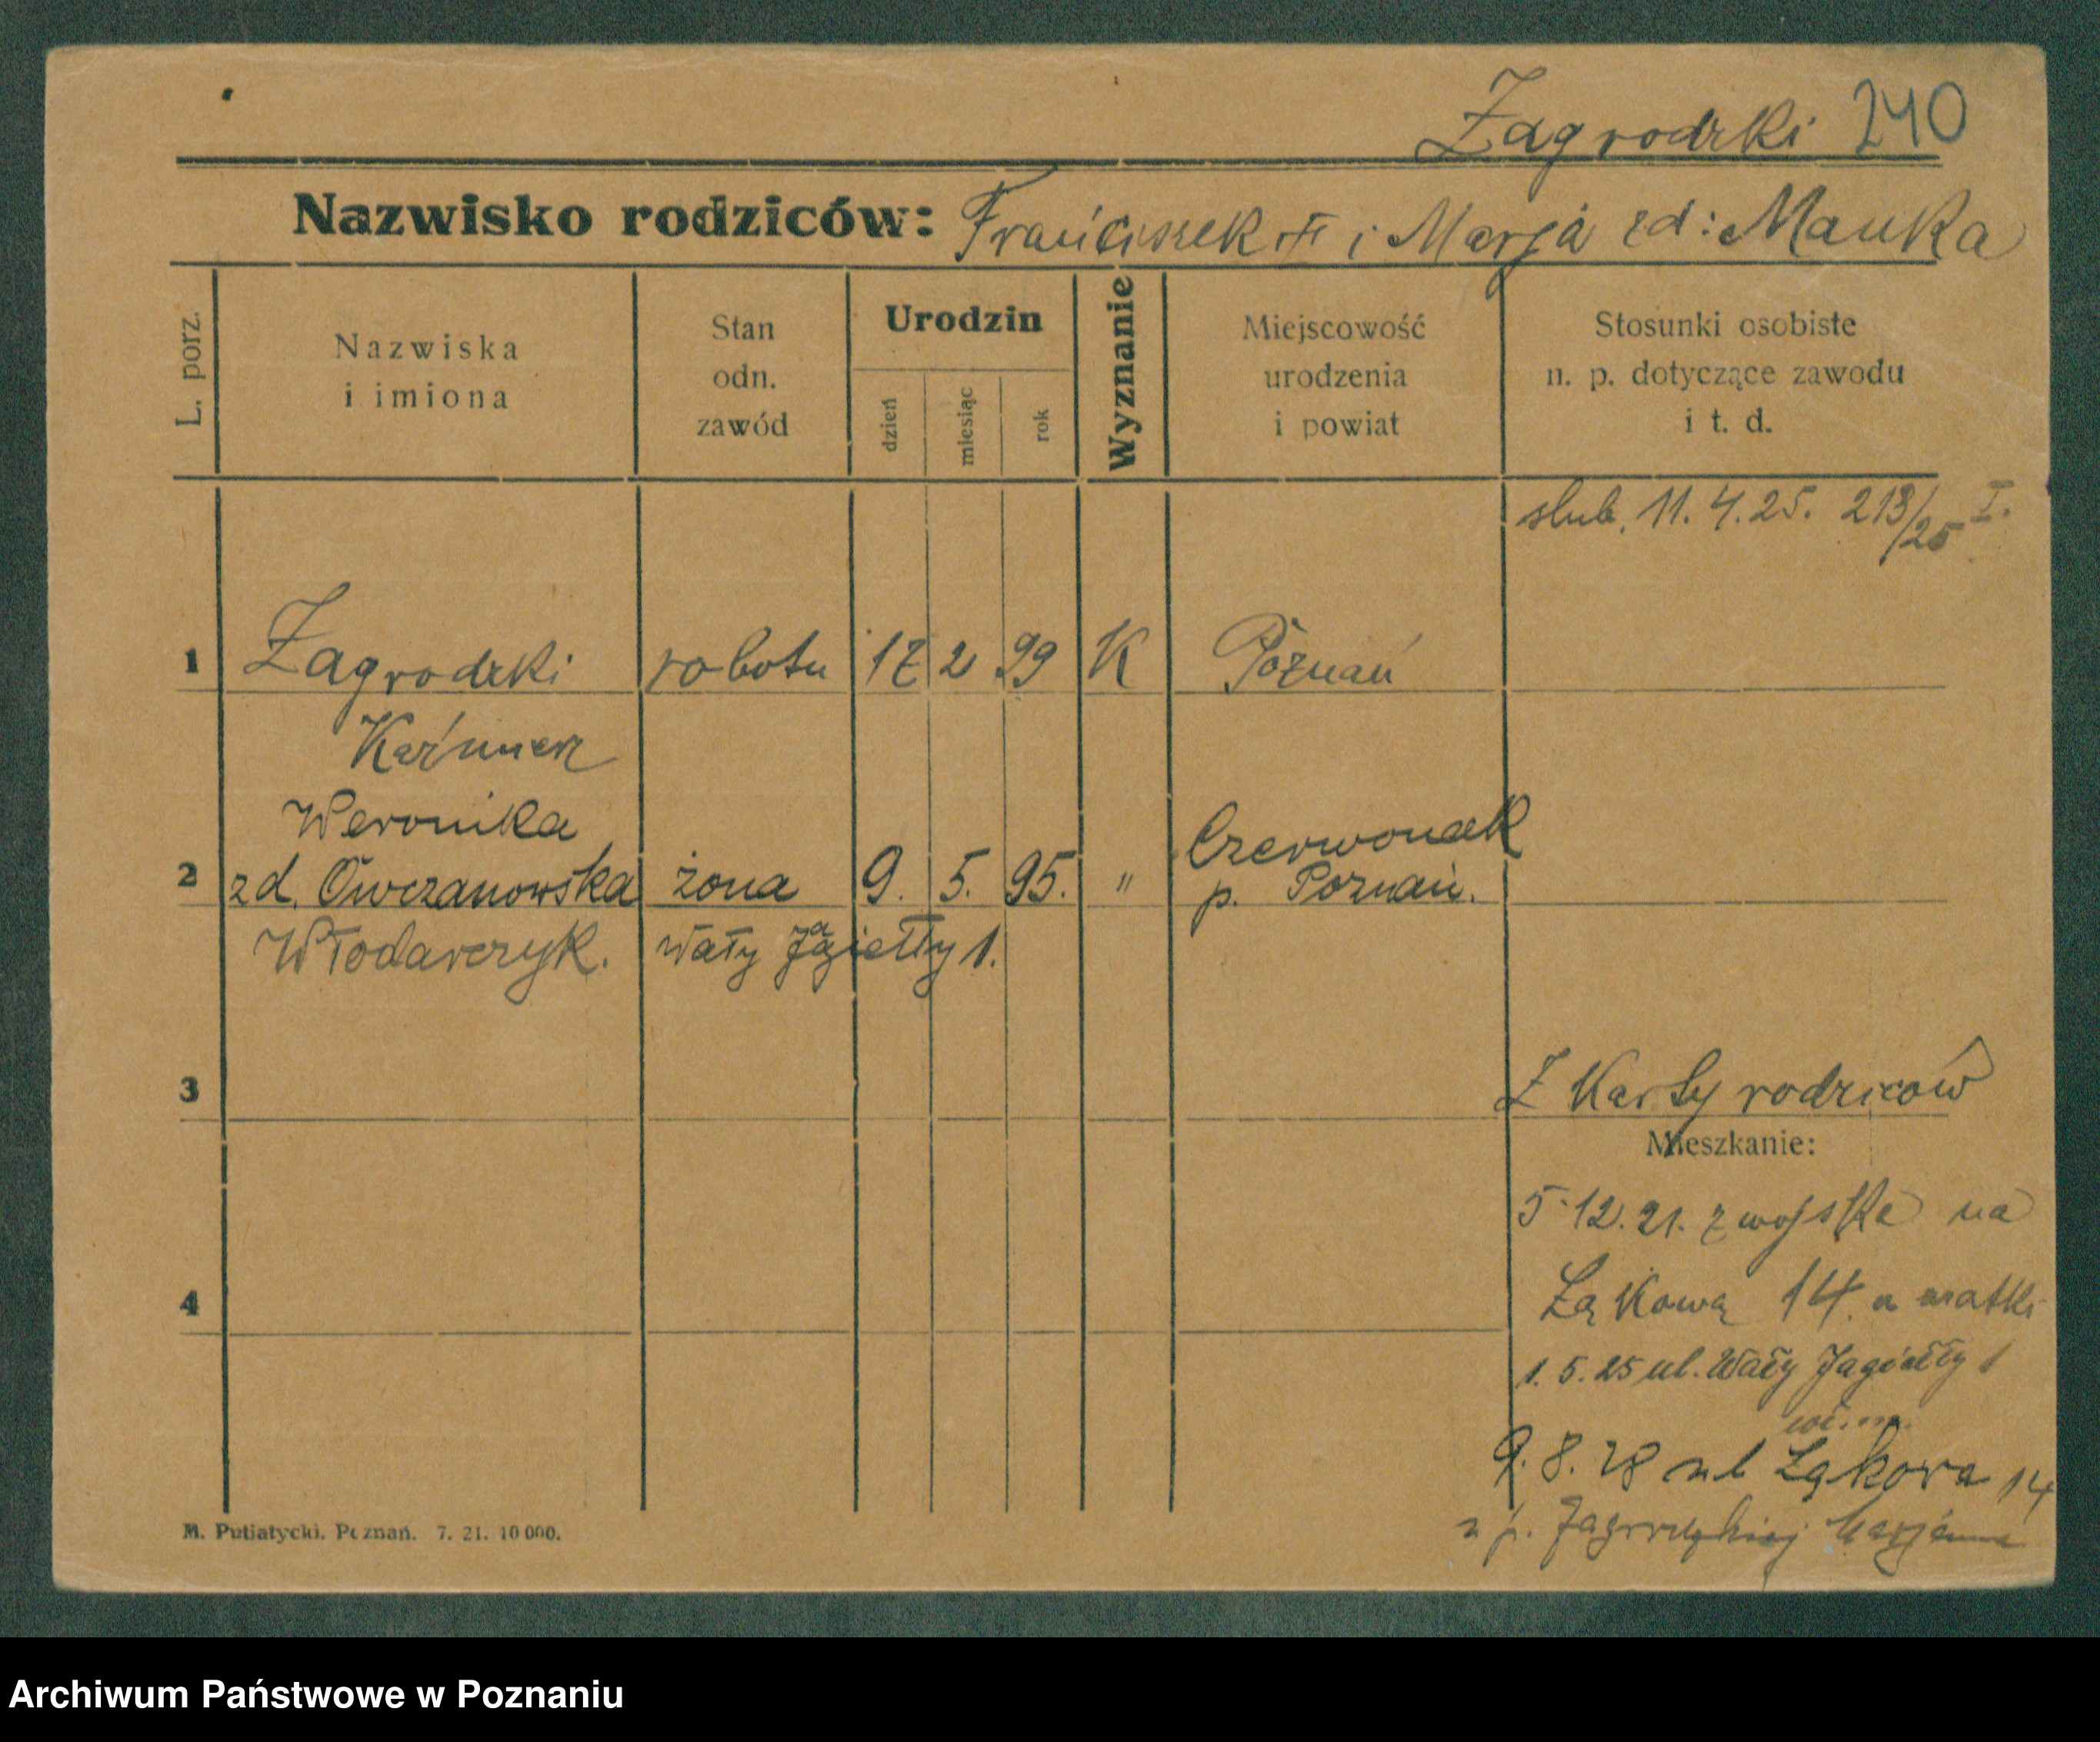 Zagrodzki 240
Nazwisko rodziców: Franciszek † i Marja zd: Mańka
L. porz.
Nazwiska
i imiona
Stan
odn.
zawód
Urodzin
dzień
miesiąc
rok
Wyznanie
Miejscowość
urodzenia
i powiat
Stosunki osobiste
n. p. dotyczące zawodu
i t. d.
ślub. 11. 4. 25. 213/25 I.
1 Zagrodzki robotn 17 2 99 K Poznań
Kaźmierz
Weronika Czerwonak
2 zd. Owczanowska żona 9. 5. 95. " p. Poznań.
Włodarczyk. Wały Jagiełły 1.
3 Z Karty rodziców
Mieszkanie:
5.12.21. z wojska na
4 Łąkową 14 u matki
1. 5. 25 ul. Wały Jagiełły 1
9. 8. 28 ul Łąkowa 14
u p.
M. Putiatycki. Poznań. 7. 21. 10 000.
Archiwum Państwowe w Poznaniu